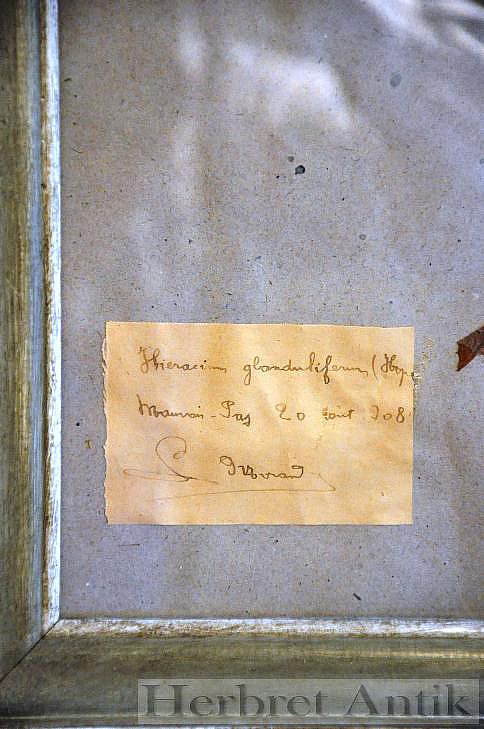 Hieracium glanduliferum (Hop
Mauvais-Pas 20 août 908
Herbret Antik